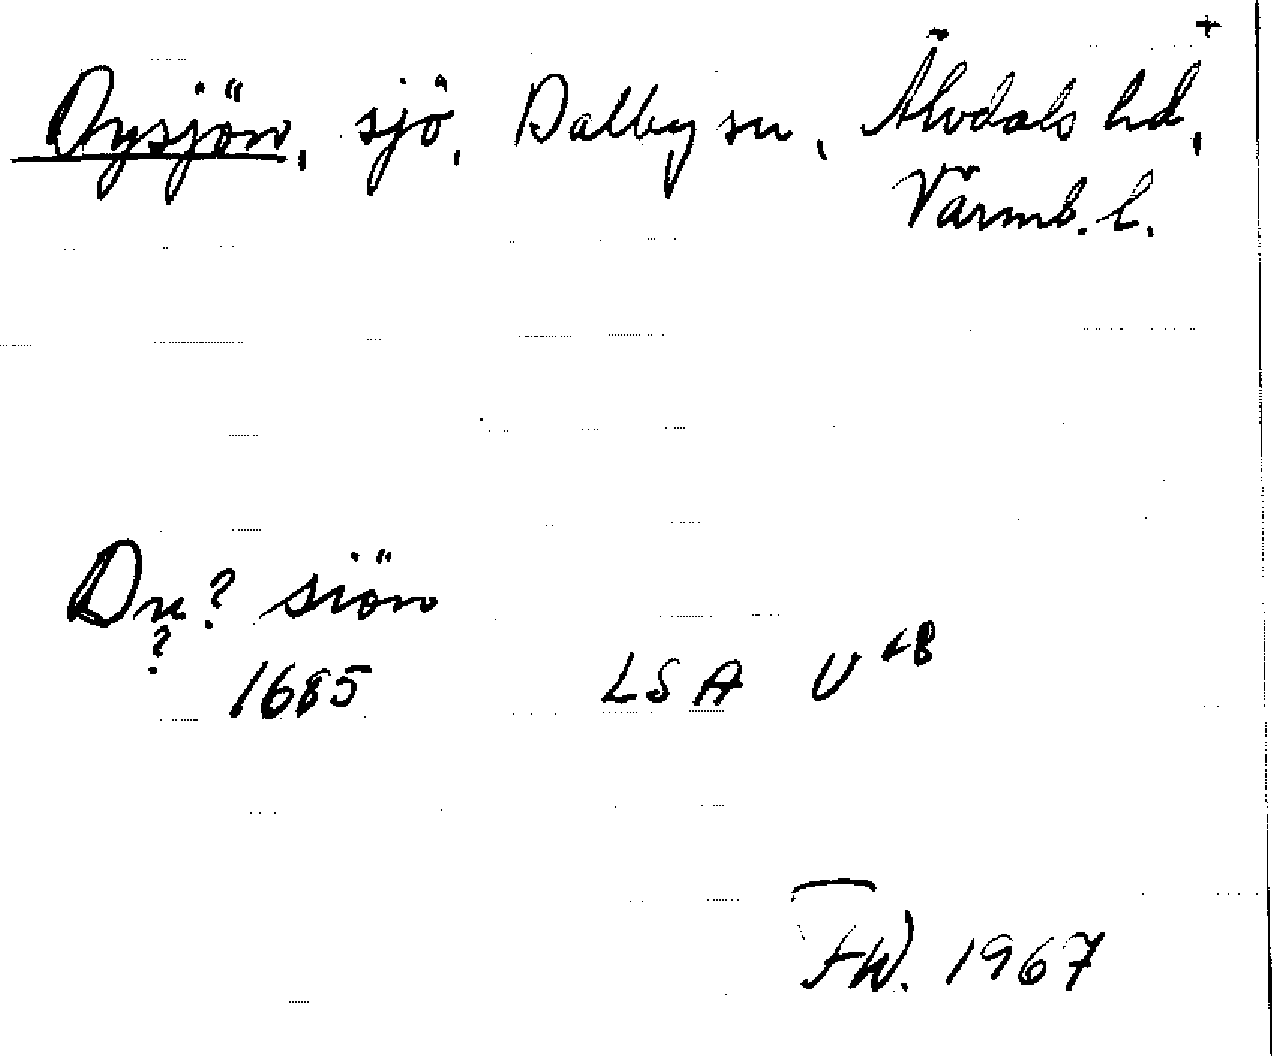 +
Dysjön, sjö, Dalby sn, Älvdals hd,
Värml. l.
Du? siön
?
1685 LSA U 48
FW. 1967